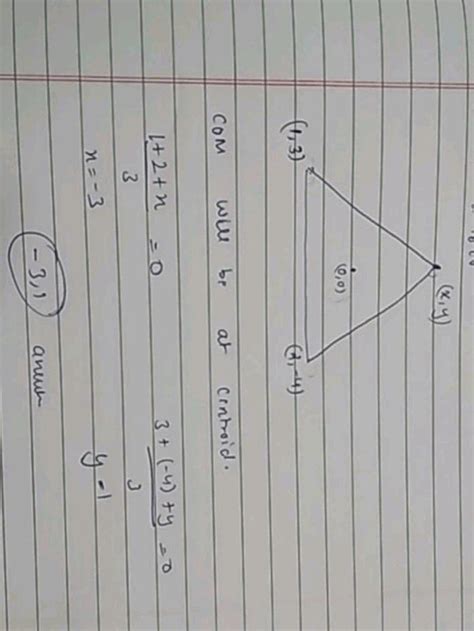 (x,y)
(0,0)
(1,3) (2,-4)
COM will be at centroid.
1+2+x/3 = 0 3+(-4)+y/3 = 0
x = -3 y = 1
-3,1 answer